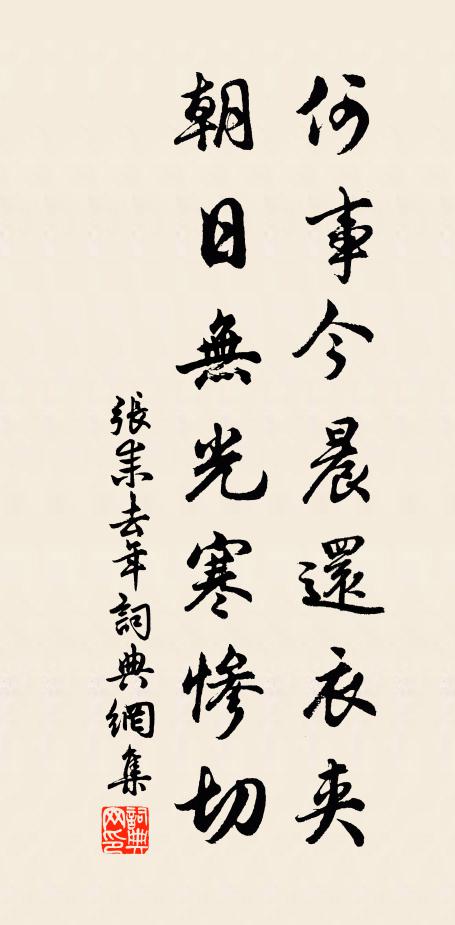 何事今晨還衣夾
朝日無光寒慘切
張耒去年詞典網集
詞典
网印